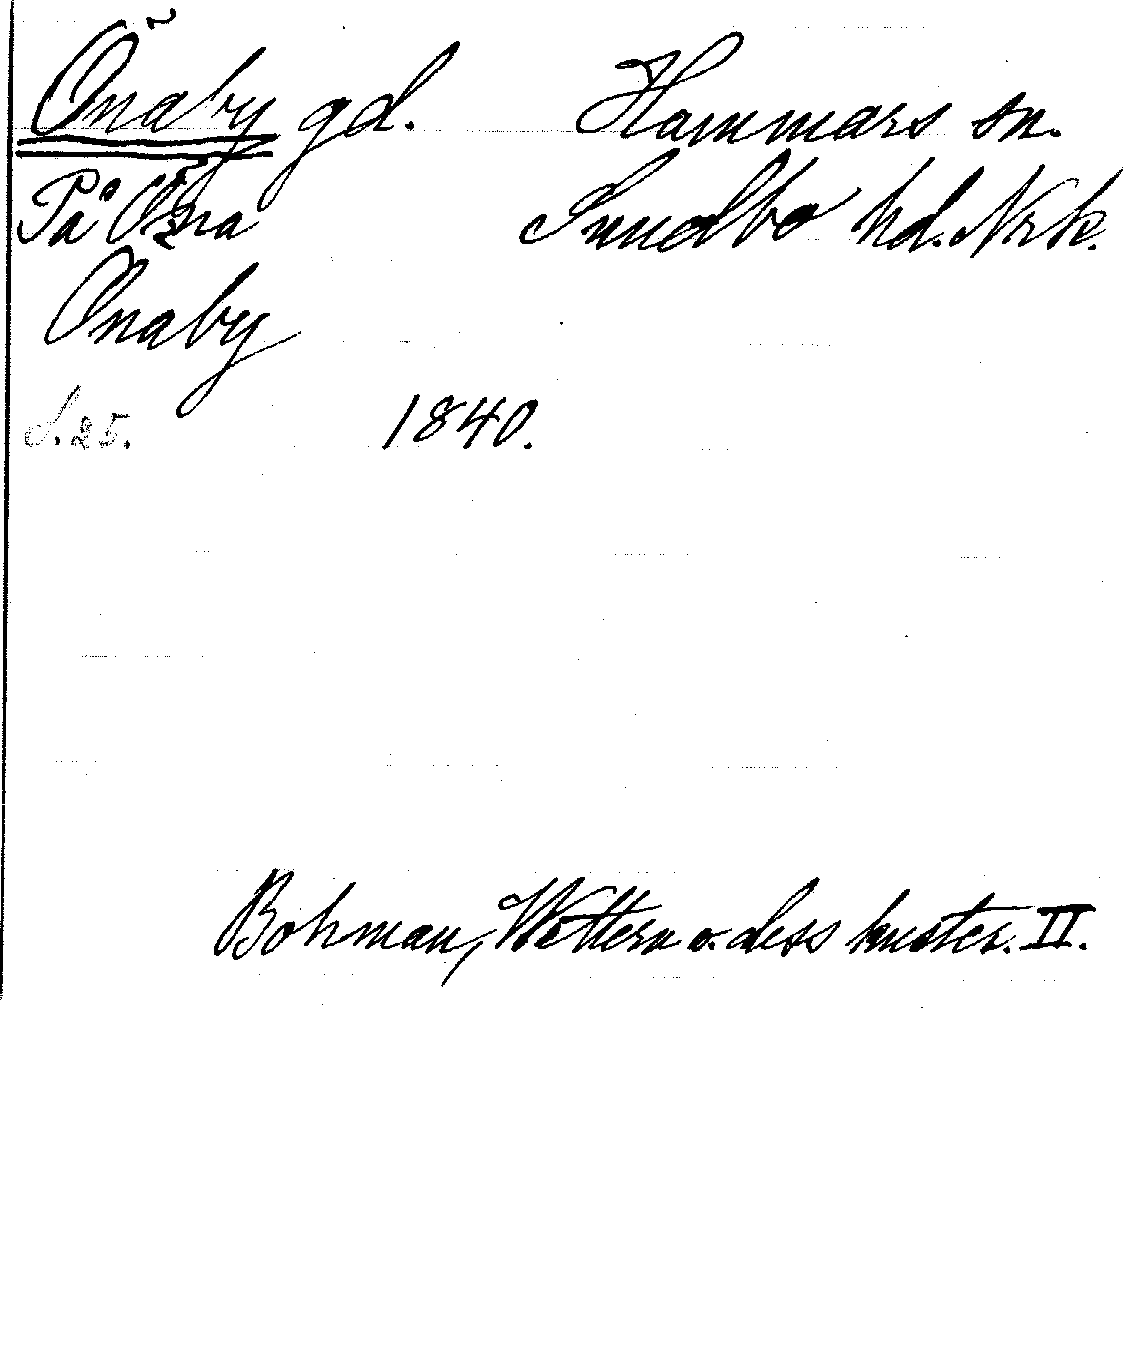 Önaby gd. Hammars sn.
På Öna Sundbo hd. Nrk.
Önaby
S. 25. 1840.
Bohman, Wettern o. dess kuster. II.